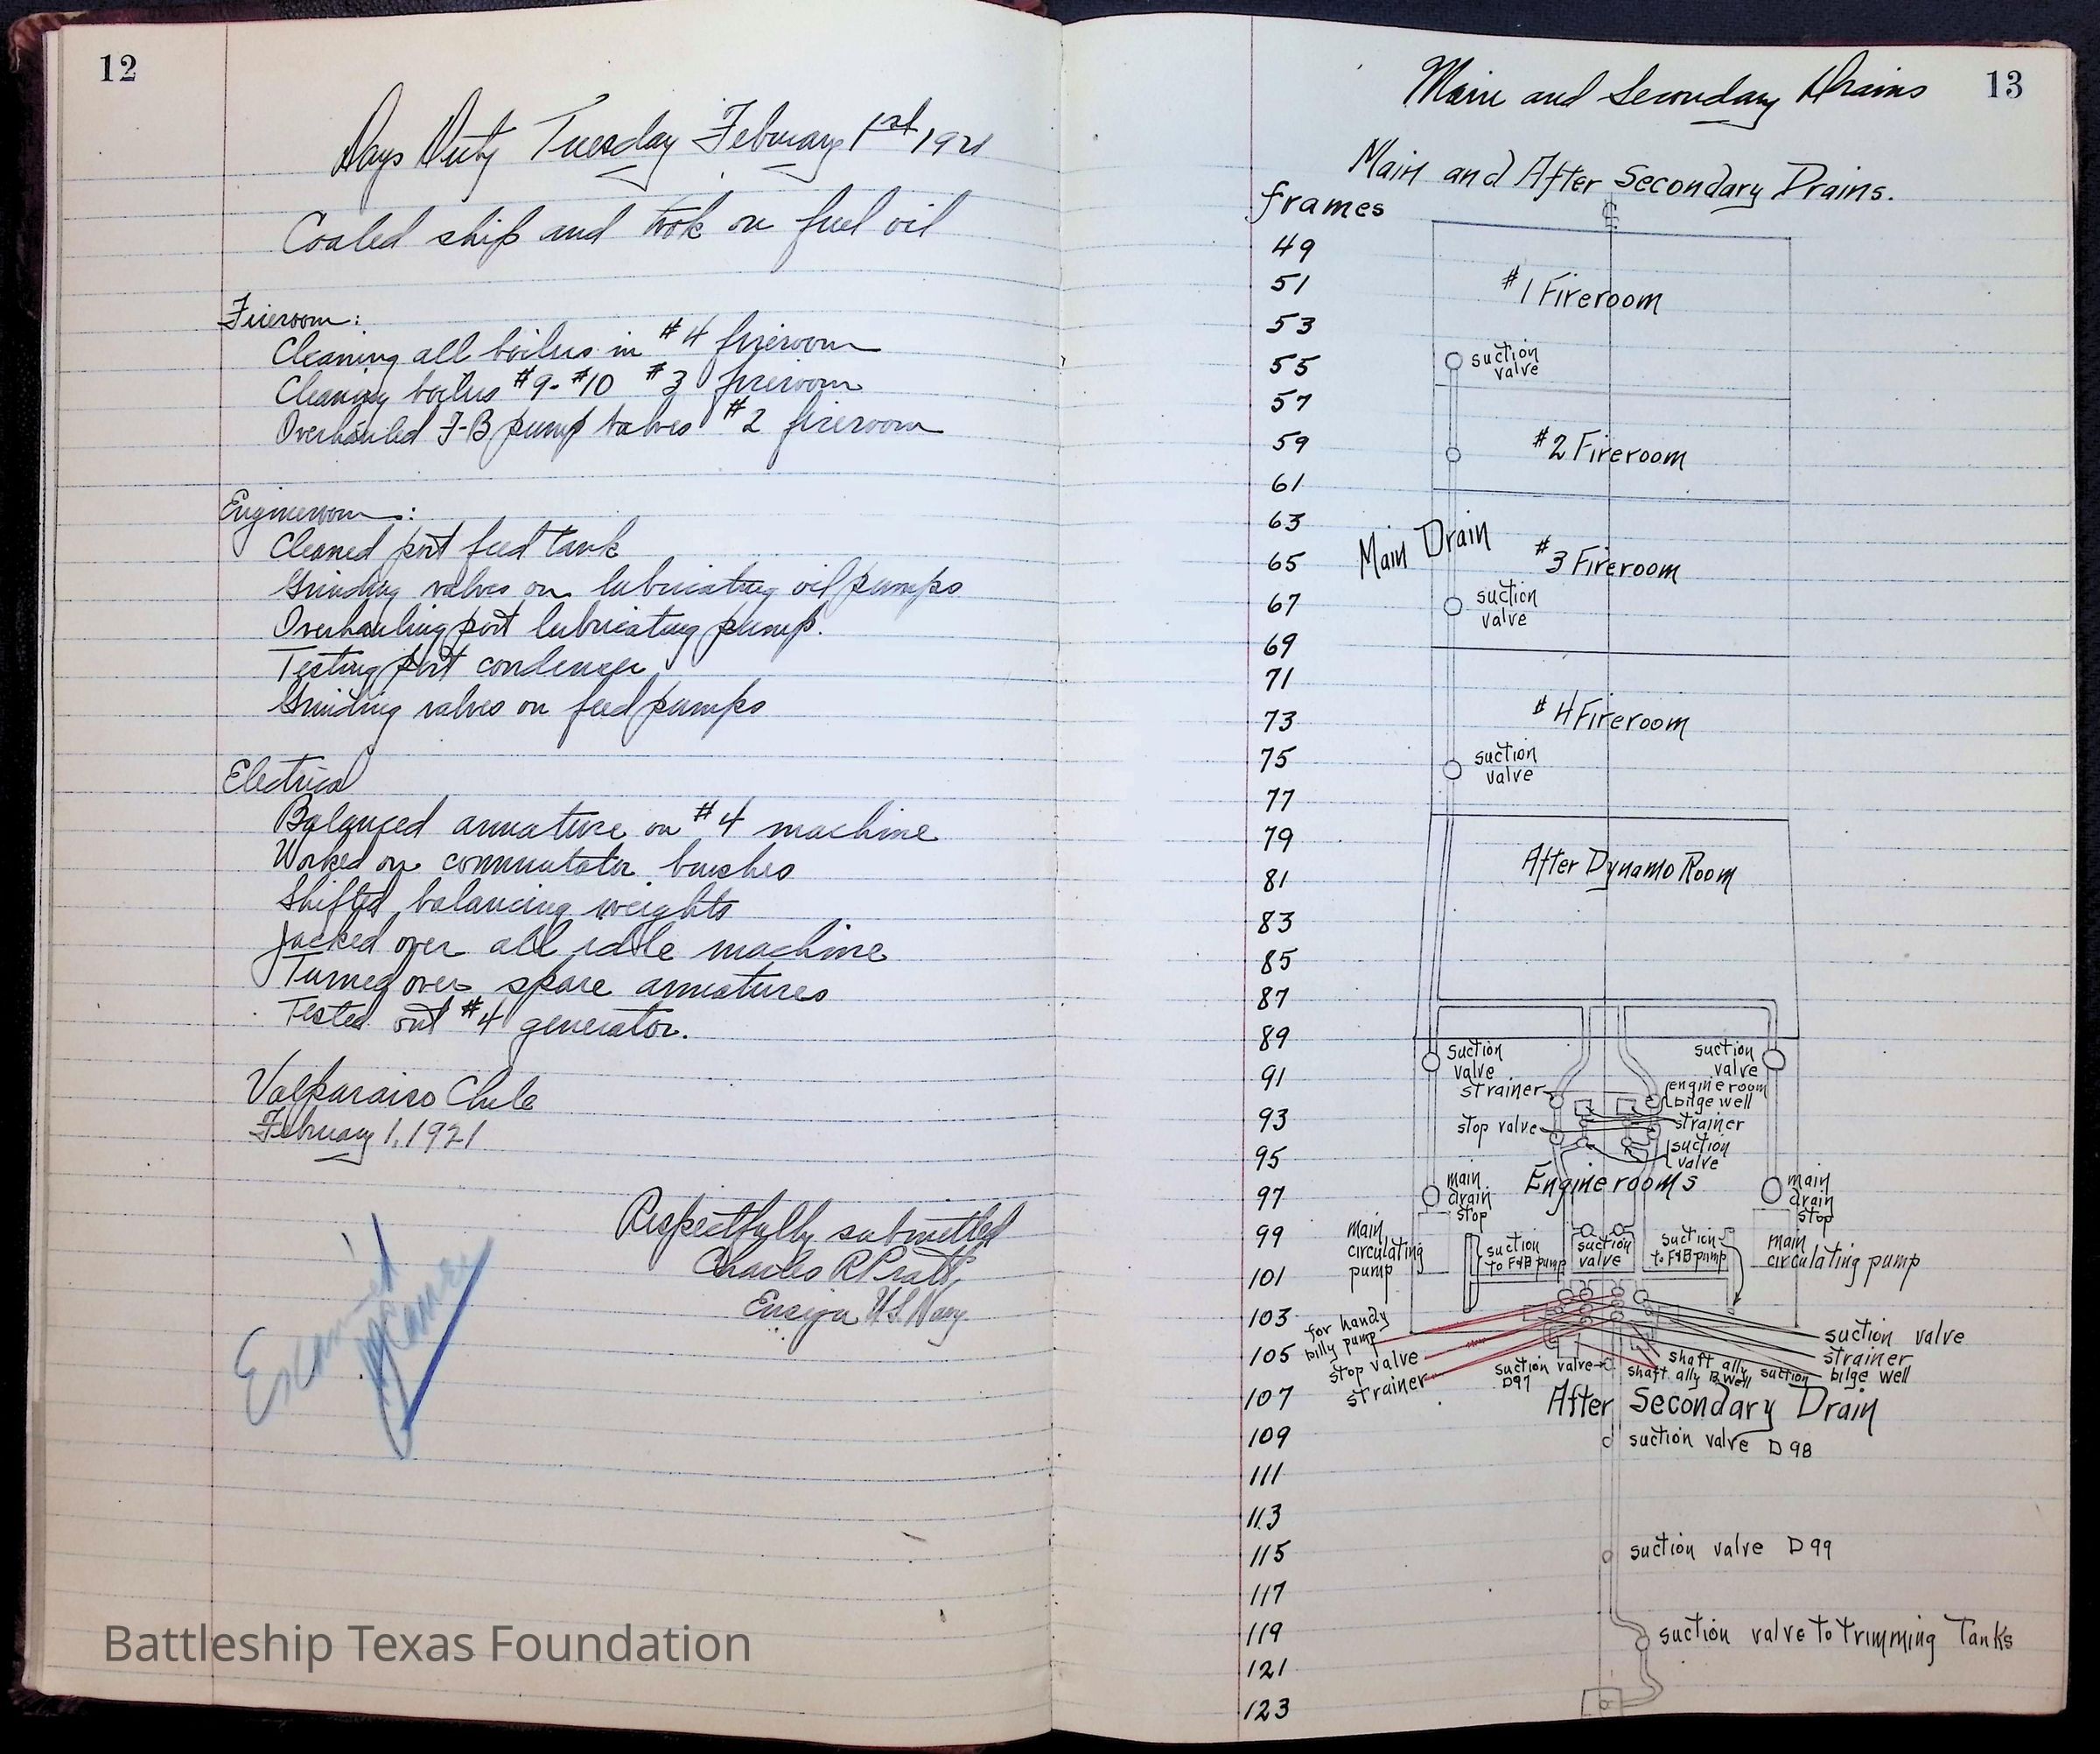 12
Days Duty Tuesday February 1st 1921
Coaled ship and took on fuel oil
Fireroom:
Cleaning all boilers in #4 fireroom
Cleaning boilers #9-#10 #3 fireroom
Overhauled F-B pump valves #2 fireroom
Engineroom:
Cleaned port feed tank
Grinding valves on lubricating oil pumps
Overhauling port lubricating pump.
Testing port condenser
Grinding valves on feed pumps
Electrical
Balanced armature on #4 machine
Worked on commutator brushes
Shifted balancing weights
Jacked over all idle machine
Turned over spare armatures
Tested out #4 generator.
Valparaiso Chile
February 1, 1921
Respectfully submitted
Charles R Pratt,
Ensign U.S. Navy
Battleship Texas Foundation
13
Main and Secondary Drains
Main and After Secondary Drains.
frames
49
51
53
55
57
59
61
63
65
67
69
71
73
75
77
79
81
83
85
87
89
91
93
95
97
99
101
103
105
107
109
111
113
115
117
119
121
123
#1 Fireroom
suction
valve
#2 Fireroom
Main Drain
#3 Fireroom
suction
valve
#4 Fireroom
suction
valve
After Dynamo Room
suction
valve
suction
valve
strainer
engine room
bilge well
stop valve
strainer
suction
valve
Engine rooms
main
drain
stop
main
drain
stop
main
circulating
pump
suction
to F&B pump
suction
valve
suction
to F&B pump
main
circulating pump
for handy
billy pump
stop valve
strainer
suction valve
D97
shaft ally
shaft ally B. well suction
suction valve
strainer
bilge well
After Secondary Drain
suction valve D98
suction valve D99
suction valve to trimming Tanks